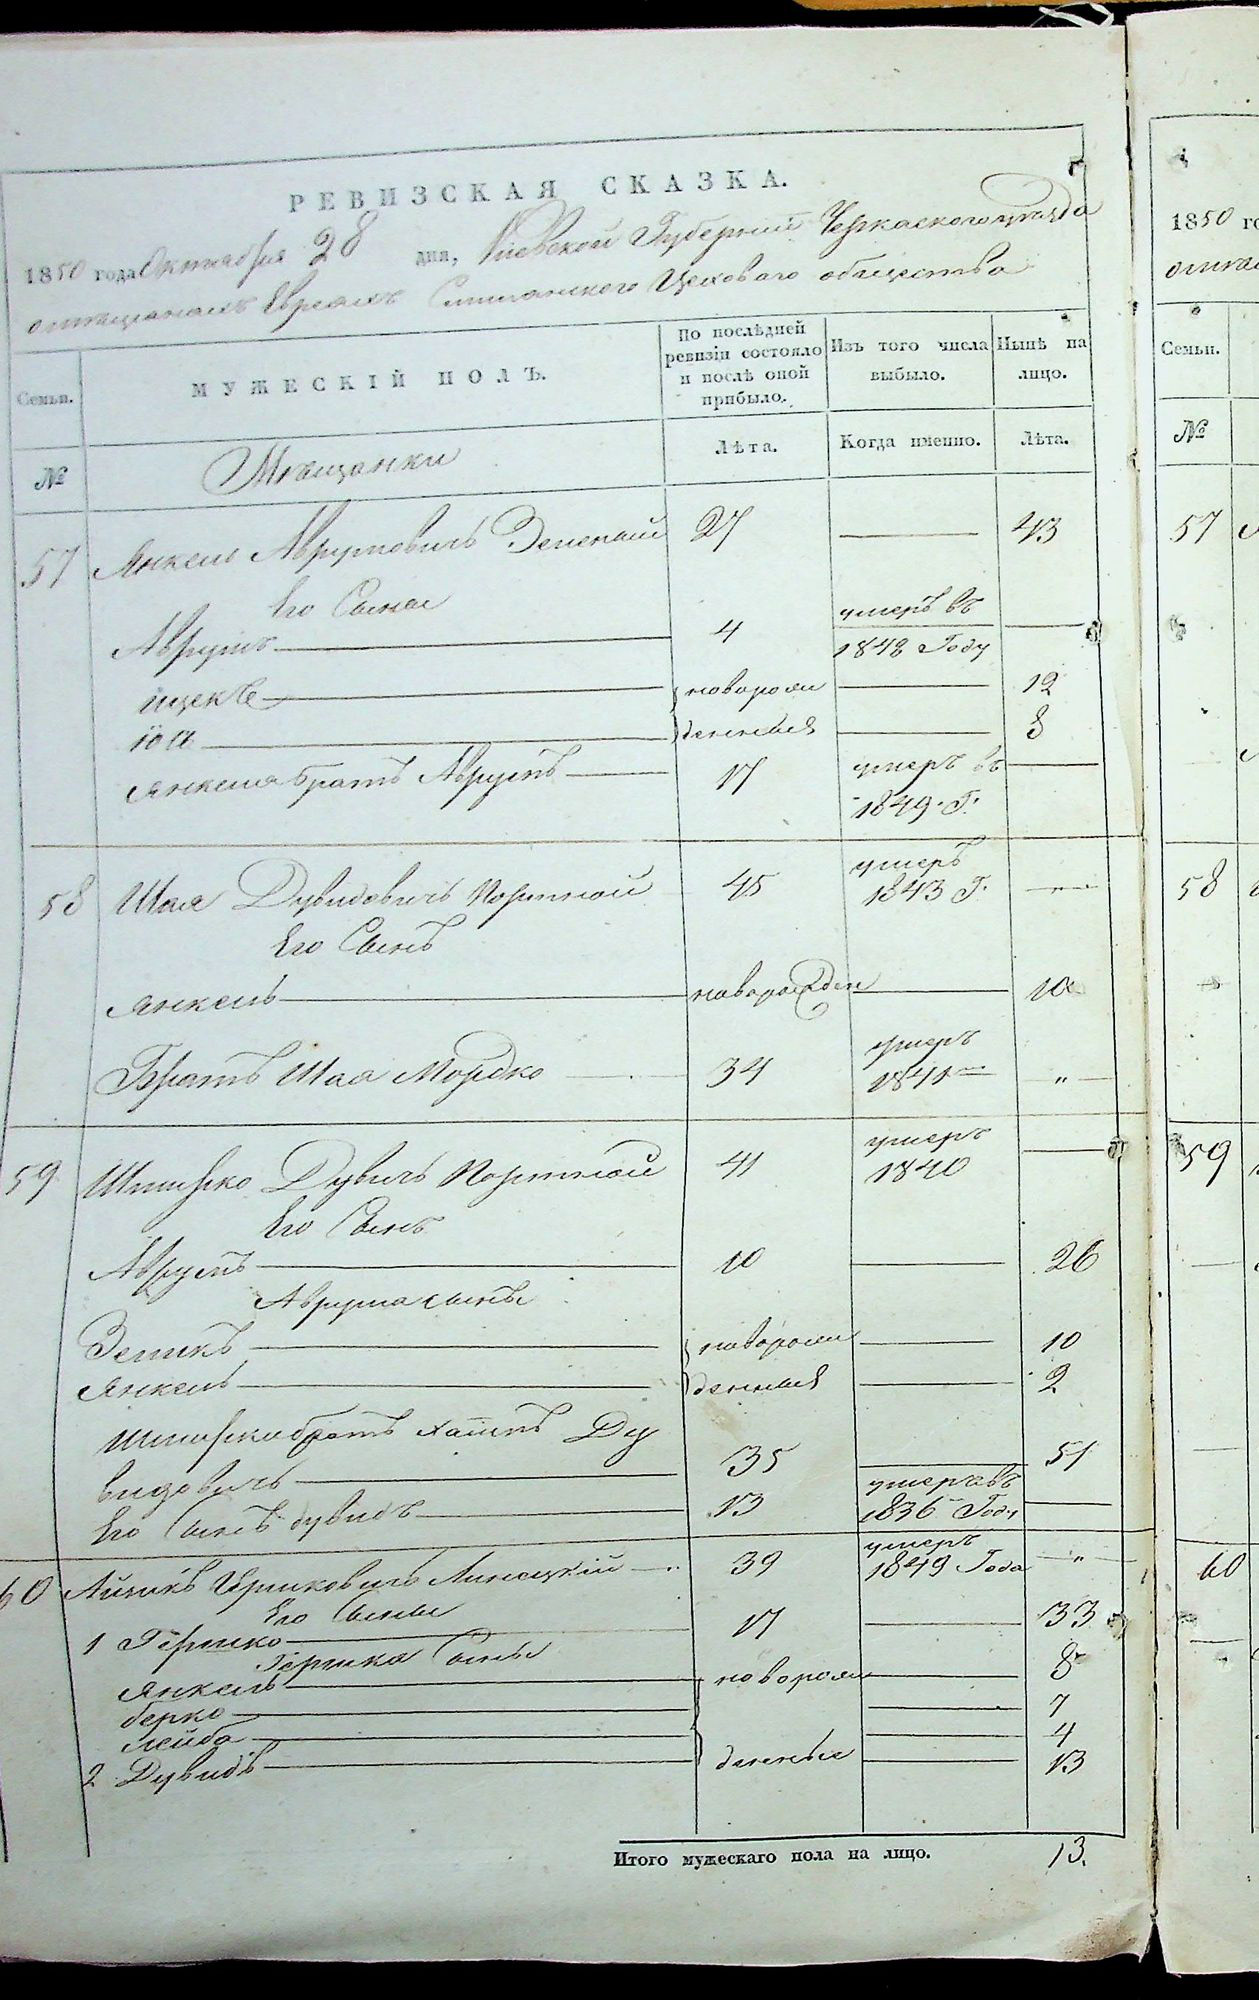 РЕВИЗСКАЯ СКАЗКА.
1850 года Октября 28 дня, Киевской Губернии Черкаскаго уѣзда
о мещанахъ Евреахъ Смилянского Цеховаго общества
Семьи.
МУЖЕСКІЙ ПОЛЪ.
По послѣдней ревизіи состояло и послѣ оной прибыло.
Изъ того числа выбыло.
Нынѣ на лицо.
№
Мещанки
Лѣта.
Когда именно.
Лѣта.
57 Янкель Аврумовичъ Зеленый 27 43
Его Сыны
Аврумъ 4 умеръ въ 1848 Году
Ицекъ новорож 12
Іос денныя 8
Янкеля братъ Аврумъ 17 умеръ въ 1849 Г.
58 Шая Дувидовичъ Портной 45 умеръ 1843 Г.
Его Сынъ
Янкель новорожден 10
Братъ Шая Мордко 34 умеръ 1841 "
59 Шмирко Дувичъ Портной 41 умеръ 1840
Его Сынъ
Аврумъ 10 26
Аврума сыны
Зеликъ новорож 10
Янкель денныя 2
братъ Ду
видовичъ 35 51
Его Сынъ Дувидъ 13 умеръ въ 1836 Году
60 Айзикъ Иршковичъ Линецкій 39 умеръ 1849 Года "
Его Сыны
1 Гершко 17 33
Гершка Сыны
Янкель новорож 8
берко 7
лейба 4
2 Дувидъ денные 13
Итого мужескаго пола на лицо. 13.
1850 го
Семьи.
№
57
58
59
60